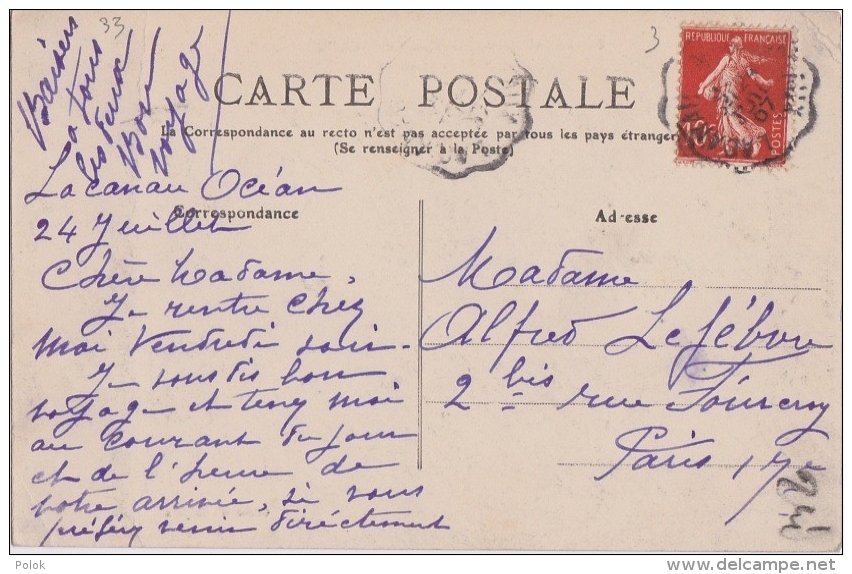 33
3
Baisers
à tous
les deux
Bon
voyage
REPUBLIQUE FRANÇAISE
POSTES
CARTE POSTALE
La Correspondance au recto n'est pas acceptée par tous les pays étrangers
(Se renseigner à la Poste)
Lacanau Océan
24 Juillet
Correspondance
Adresse
Chère Madame,
Je rentre chez
moi Vendredi soir.
Je vous dis bon
voyage et tenez moi
au courant du jour
et de l'heure de
votre arrivée, si vous
préférez venir directement
Madame
Alfred Lefébvre
2 bis rue Fourcroy
Paris 17e
Polok
delcampe.net